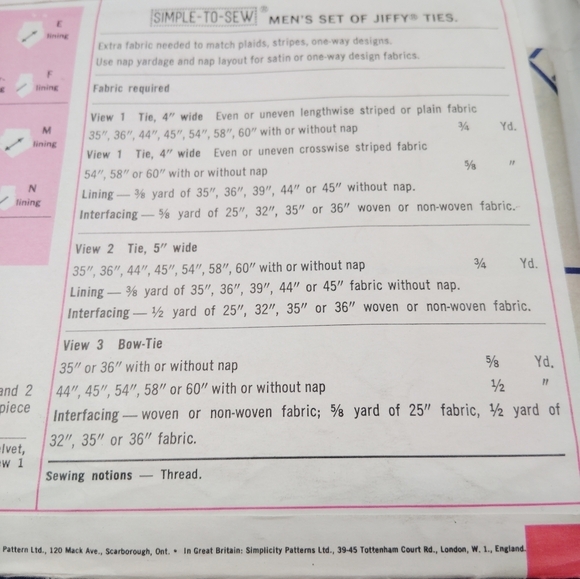 SIMPLE-TO-SEW® MEN'S SET OF JIFFY® TIES.
Extra fabric needed to match plaids, stripes, one-way designs.
Use nap yardage and nap layout for satin or one-way design fabrics.
Fabric required
View 1 Tie, 4" wide Even or uneven lengthwise striped or plain fabric
35", 36", 44", 45", 54", 58", 60" with or without nap ¾ Yd.
View 1 Tie, 4" wide Even or uneven crosswise striped fabric
54", 58" or 60" with or without nap ⅝ "
Lining — ⅜ yard of 35", 36", 39", 44" or 45" without nap.
Interfacing — ⅝ yard of 25", 32", 35" or 36" woven or non-woven fabric.
View 2 Tie, 5" wide
35", 36", 44", 45", 54", 58", 60" with or without nap ¾ Yd.
Lining — ⅜ yard of 35", 36", 39", 44" or 45" fabric without nap.
Interfacing — ½ yard of 25", 32", 35" or 36" woven or non-woven fabric.
View 3 Bow-Tie
35" or 36" with or without nap ⅝ Yd.
44", 45", 54", 58" or 60" with or without nap ½ "
Interfacing — woven or non-woven fabric; ⅝ yard of 25" fabric, ½ yard of
32", 35" or 36" fabric.
Sewing notions — Thread.
E
lining
F
lining
M
lining
N
lining
and 2
piece
lvet,
w 1
Pattern Ltd., 120 Mack Ave., Scarborough, Ont. • In Great Britain: Simplicity Patterns Ltd., 39-45 Tottenham Court Rd., London, W. 1., England.